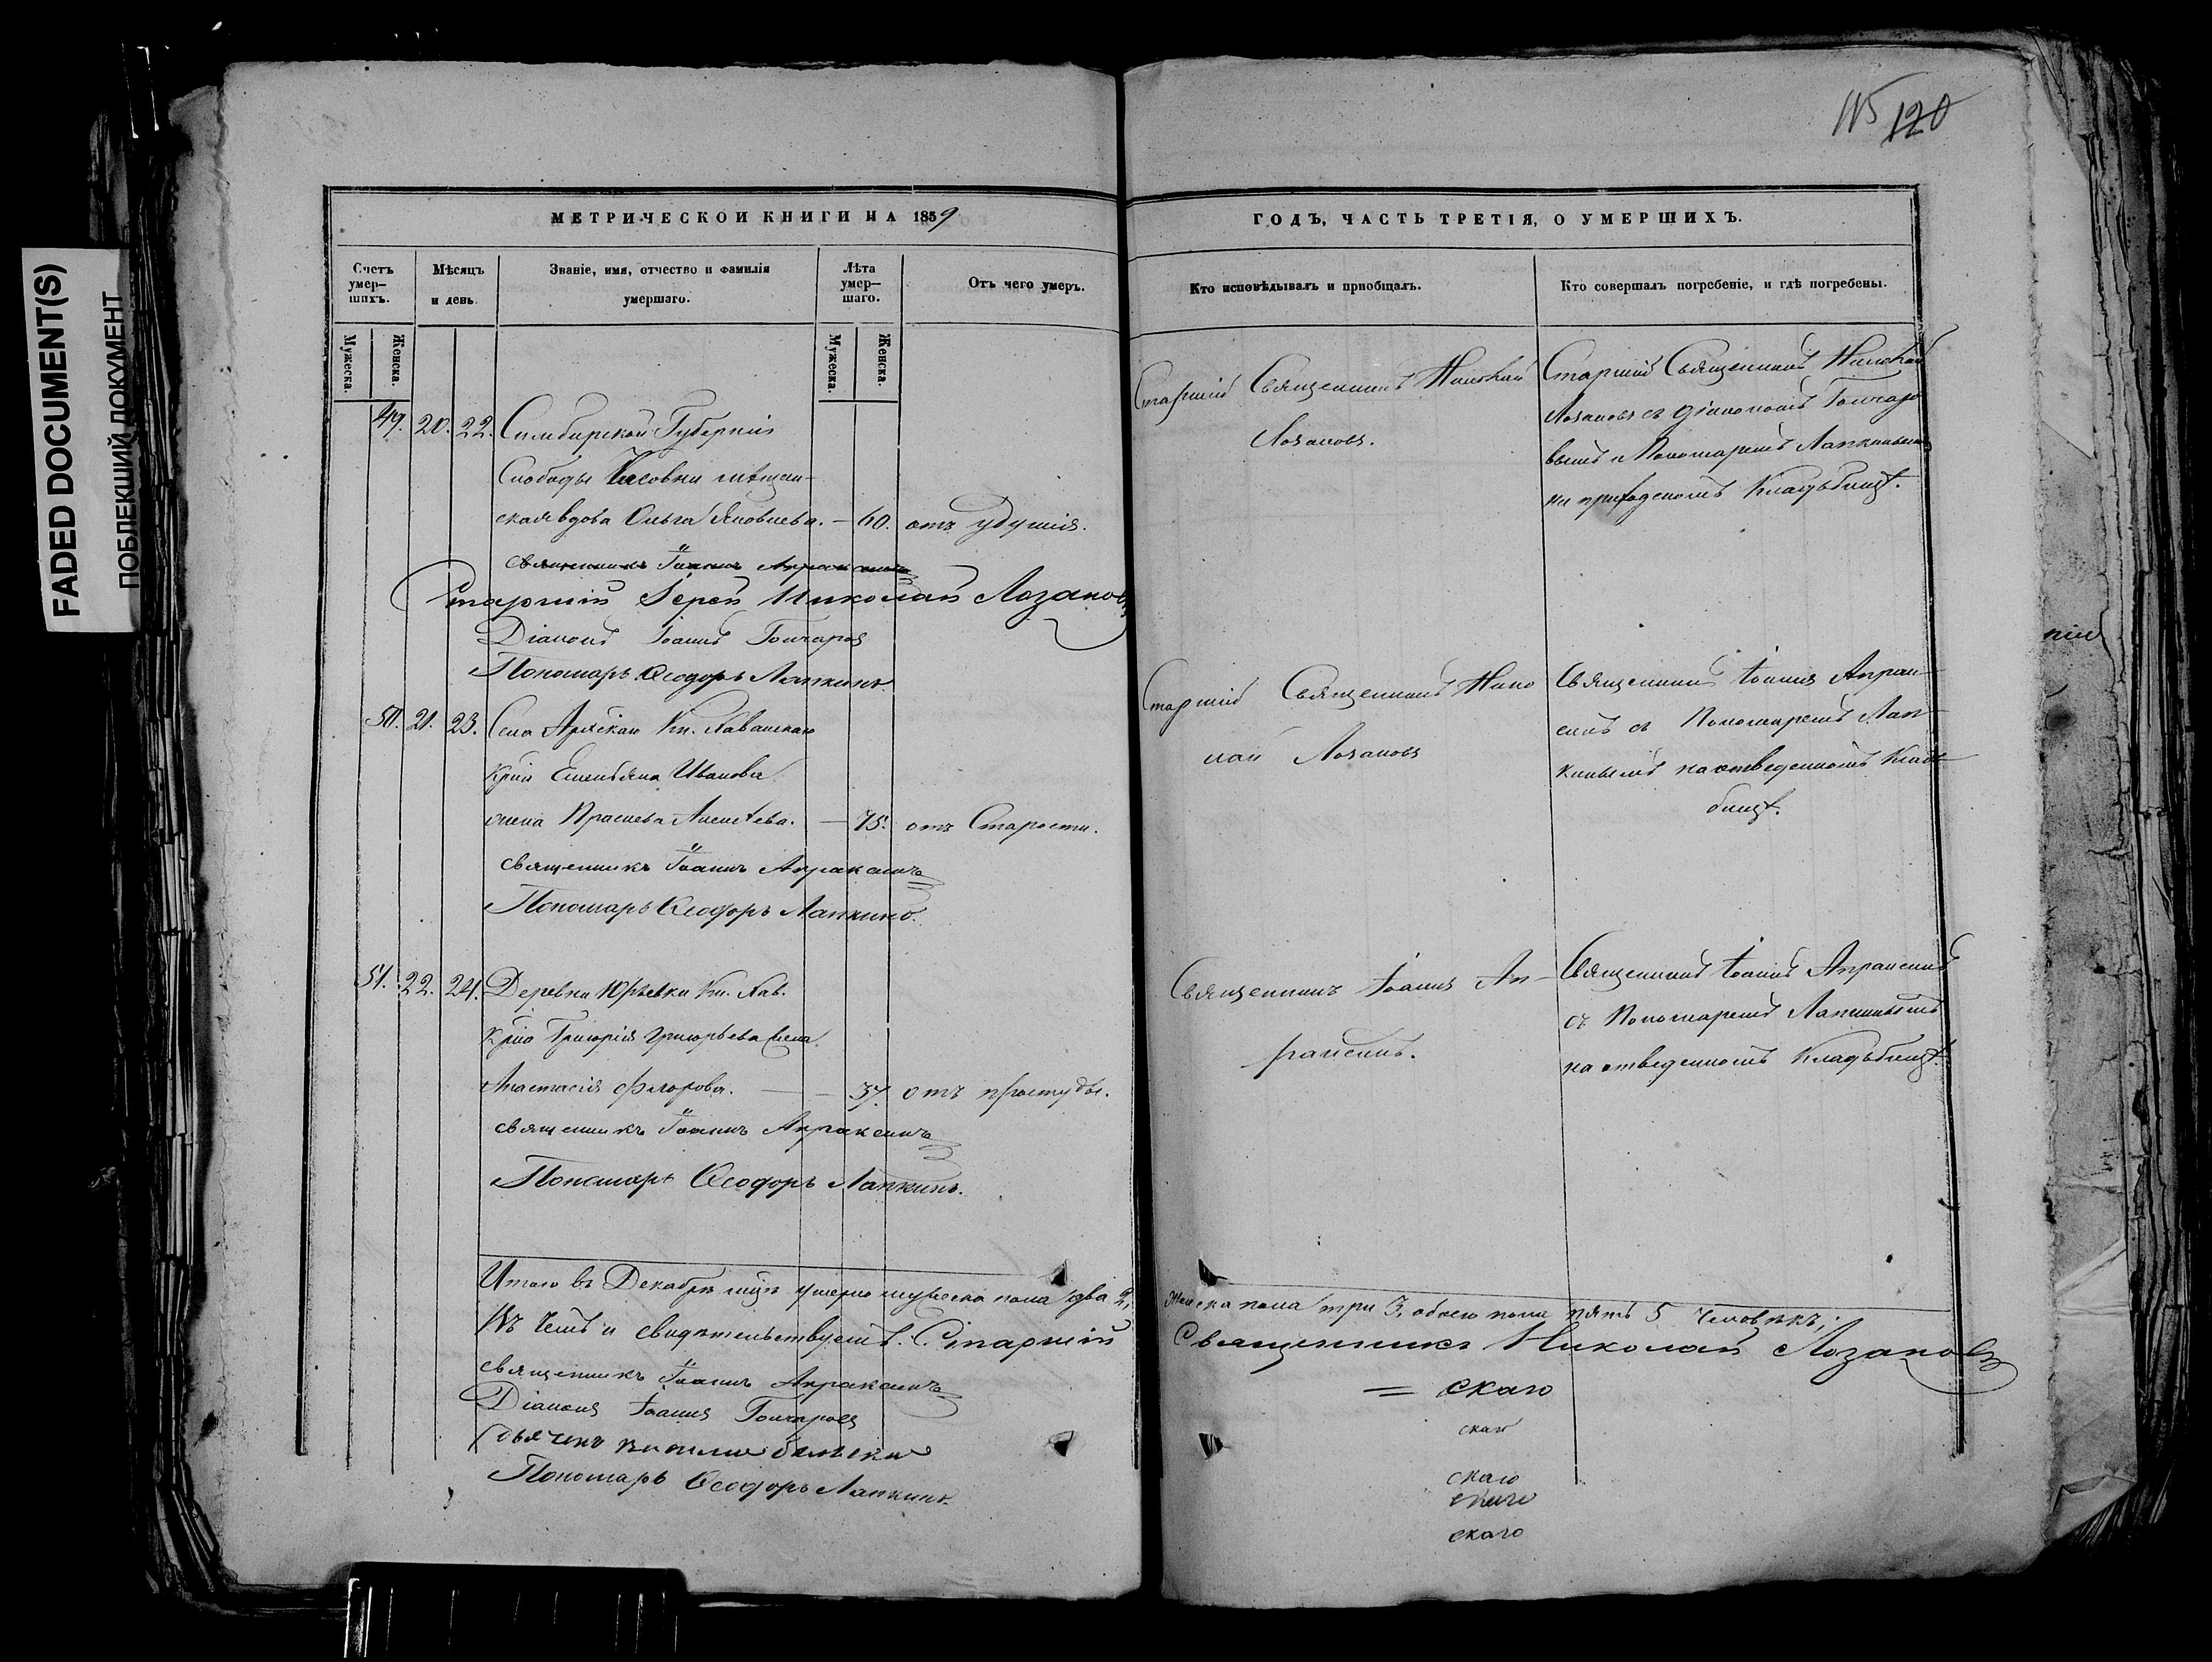 FADED DOCUMENT(S)
ПОБЛЕКШИЙ ДОКУМЕНТ
115 120
МЕТРИЧЕСКОЙ КНИГИ НА 1859
Счетъ умер-шихъ.
Мѣсяцъ и день.
Званіе, имя, отчество и фамилія умершаго.
Лѣта умер-шаго.
Отъ чего умеръ.
Мужеска.
Женска.
Мужеска.
Женска.
49. 20. 22. Симбирской Губерніи
Слободы Часовни мѣщан-
ская вдова Ольга Яковлева. — 60. отъ удушія.
священникъ Іоаннъ Апраксинъ
Старшій Іерей Николай Лозановъ
Діаконъ Іоаннъ Гончаровъ
Пономарь Ѳеодоръ Лапкинъ.
50. 21. 23. Села Кн.
Крна Емельяна Иванова
жена Алексѣева. — 75. отъ Старости.
священникъ Іоаннъ Апраксинъ
Пономарь Ѳеодоръ Лапкинъ.
51. 22. 24. Деревни Юрьевки Кн.
Крна Григорія Григорьева жена
Анастасія Флорова. — 37. отъ простуды.
священникъ Іоаннъ Апраксинъ
Пономарь Ѳеодоръ Лапкинъ.
Итого въ Декабрѣ мцѣ умерло мужеска пола два 2,
Въ чемъ и свидѣтельствуемъ. Старшій
священникъ Іоаннъ Апраксинъ
Діаконъ Іоаннъ Гончаровъ
дьячекъ
Пономарь Ѳеодоръ Лапкинъ.
ГОДЪ, ЧАСТЬ ТРЕТІЯ, О УМЕРШИХЪ.
Кто исповѣдывалъ и приобщалъ.
Кто совершалъ погребеніе, и гдѣ погребены.
Старшій Священникъ Николай
Лозановъ.
Старшій Священникъ Николай
Лозановъ съ Діакономъ Гончаро
вымъ и Пономаремъ Лапкинымъ
на приходскомъ Кладбищѣ.
Старшій Священникъ Нико
лай Лозановъ
Священникъ Іоаннъ Апрак
синъ съ Пономаремъ Лап
кинымъ на отведенномъ Клад
бищѣ.
Священникъ Іоаннъ Ап-
раксинъ.
Священникъ Іоаннъ Апраксинъ
съ Пономаремъ Лапкинымъ
на отведенномъ Кладьбищѣ.
Женска пола три 3, обоего пола пять 5 человѣкъ;
Священникъ Николай Лозановъ
= скаго
скаго
скаго
скаго
скаго